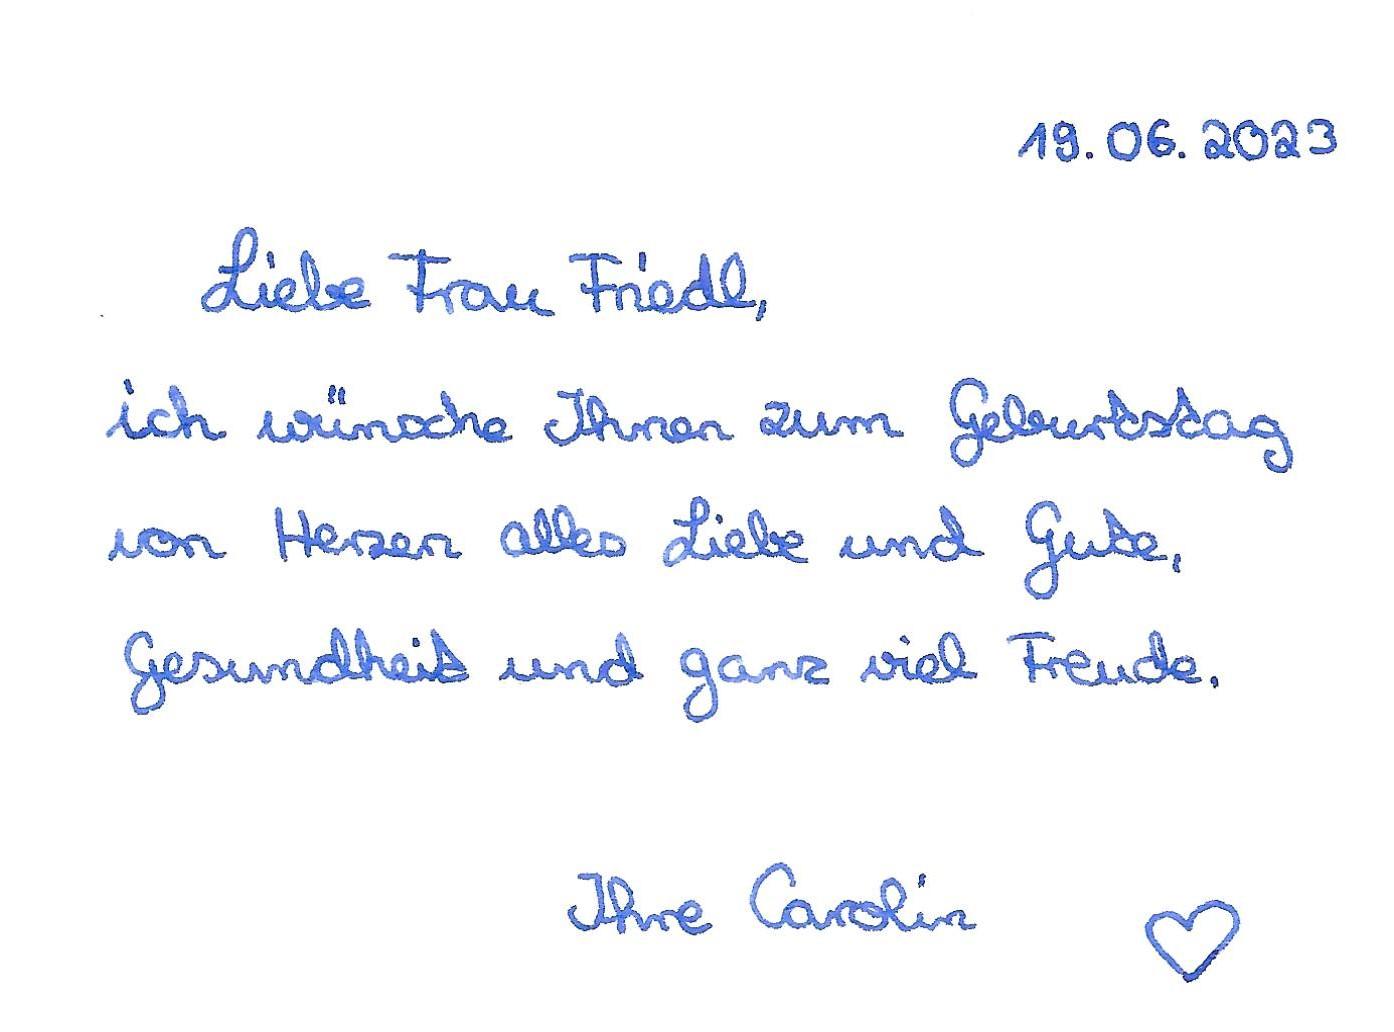 19.06.2023
Liebe Frau Friedl,
ich wünsche Ihnen zum Geburtstag
von Herzen alles Liebe und Gute,
Gesundheit und ganz viel Freude.
Ihre Carolin